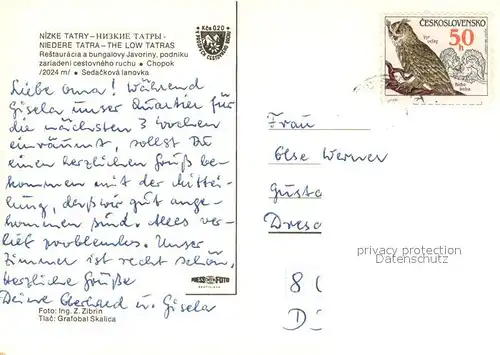 NÍZKE TATRY – НИЗКИЕ ТАТРЫ –
NIEDERE TATRA – THE LOW TATRAS
Reštaurácia a bungalovy Javoriny, podniku
zariadení cestovného ruchu • Chopok
/2024 m/ • Sedačková lanovka
Kčs 0,20
Liebe Oma! Während
Gisela unser Quartier für
die nächsten 3 Wochen
einräumt, sollst Du
einen herzlichen Gruß be-
kommen mit der Mittei-
lung, daß wir gut ange-
kommen sind. Alles ver-
lief problemlos. Unser
Zimmer ist recht schön.
Herzliche Grüße
Deine Eberhard u. Gisela
PRESSFOTO
BRATISLAVA
Foto: Ing. Z. Zibrin
Tlač: Grafobal Skalica
ČESKOSLOVENSKO
50 h
Výr
veľký
Bubo
bubo
Frau
Else Werner
Gusta
Dresd
8
D
privacy protection
Datenschutz